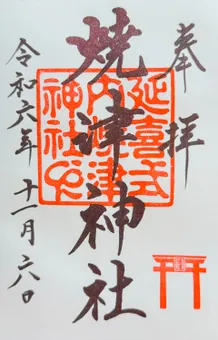 奉拝
焼津神社
延喜式
内焼津
神社之
令和六年十一月六日